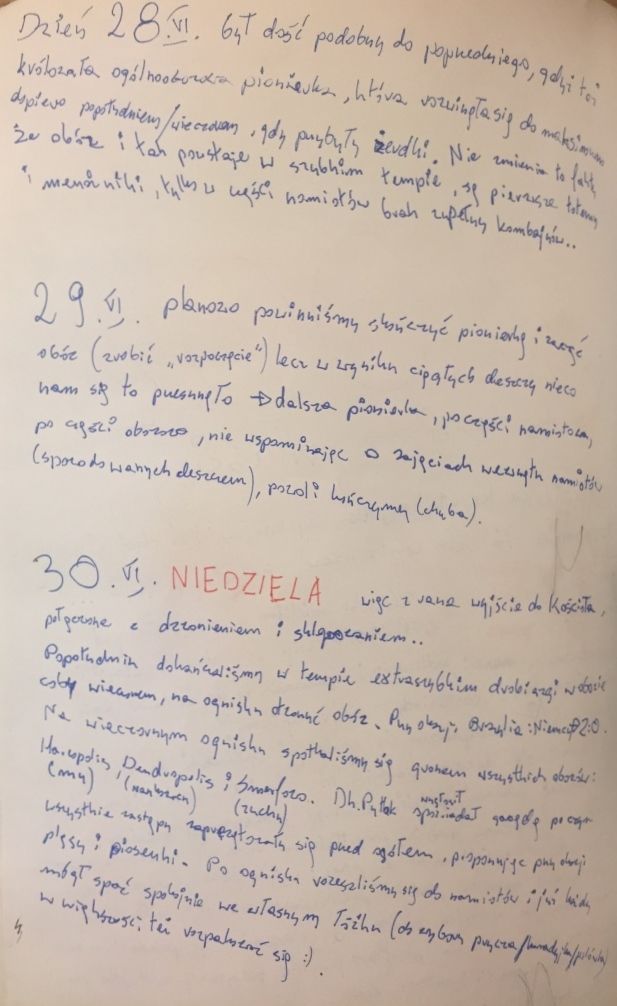 Dzień 28.VI. był dość podobny do poprzedniego, gdyż też
królowała ogólnoobozowa pionierka, która rozwinęła się do maksimum
dopiero popołudniem/wieczorem, gdy przybyły żerdki. Nie zmienia to faktu,
że obóz i tak powstaje w szybkim tempie, są pierwsze totemy
i menażniki, tylko w części namiotów brak zupełny kombajnów..
29.VI. planowo powinniśmy skończyć pionierkę i zacząć
obóz (zrobić „rozpoczęcie") lecz w wyniku ciągłych deszczy nieco
nam się to przesunęło → dalsza pionierka, po części namiotowa,
po części obozowa, nie wspominając o zajęciach wewnątrz namiotów
(spowodowanych deszczem), powoli kończymy (chyba).
30.VI. NIEDZIELA więc z rana wyjście do Kościoła,
połączone z dzwonieniem i sklepowaniem..
Popołudniu dokańczaliśmy w tempie extraszybkim drobiazgi w obozie
coby wieczorem, na ognisku otworzyć obóz. Przy okazji, Brazylia:Niemcy 2:0.
Na wieczornym ognisku spotkaliśmy się gronem wszystkich obozów:
Haropolis, Dendropolis i Smerfowo. Dh. Pytak wygłosił gawędę po czym
(my) (zuchy)
wszystkie zastępy zaprezentowały się przed ogółem, proponując przy okazji
pląsy i piosenki. Po ognisku rozeszliśmy się do namiotów i już każdy
mógł spać spokojnie we własnym łóżku (do wyboru prycza/kanadyjka/polówka)
w większości też rozpakować się :).